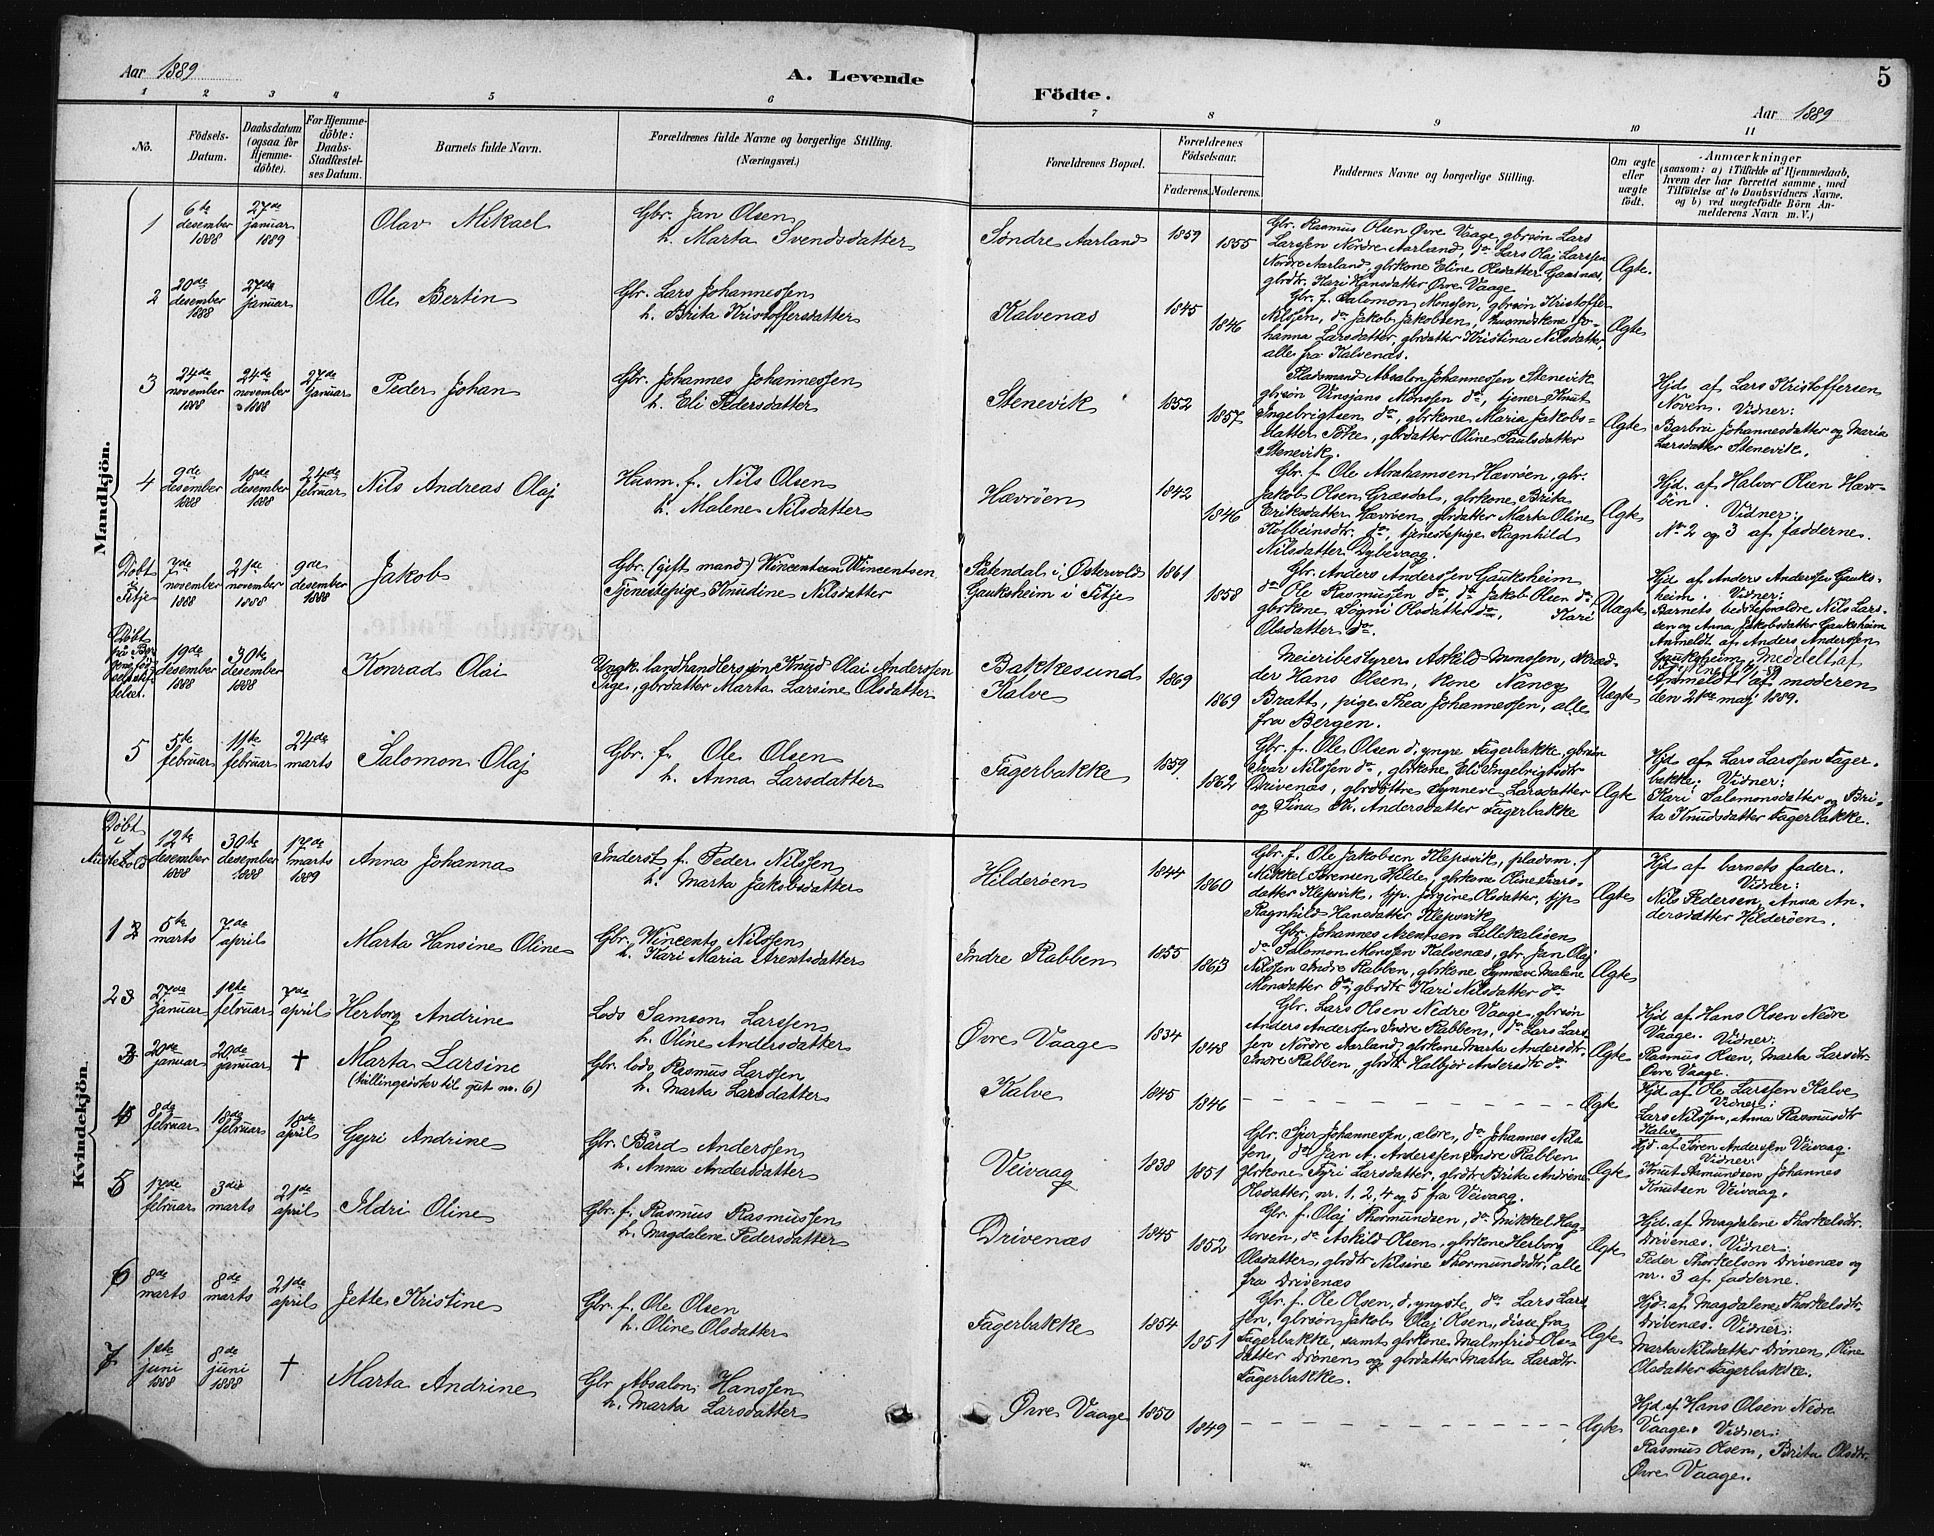 Aar 1889
A. Levende
Födte.
Aar 1889
5
1 2 3 4 5 6 7 8 9 10 11
No.
Födsels-Datum.
Daabsdatum (ogsaa for Hjemmedøbte).
For Hjemmedøbte: Daabs-Stadfæstelses Datum.
Barnets fulde Navn.
Forældrenes fulde Navne og borgerlige Stilling. (Næringsvei.)
Forældrenes Bopæl.
Forældrenes Födselsaar.
Faderens. Moderens.
Faddernes Navne og borgerlige Stilling.
Om ægte eller uægte födt.
Anmærkninger
(saasom: a) i Tilfælde af Hjemmedaab, hvem der har forrettet samme, med Tilföielse af to Daabsvidners Navne. og b) ved uægtefödte Börn Anmelderens Navn m. V.)
Mandkjön.
1 6te desember 1888 27de januar 1889 Olav Mikael
Gbr. Jan Olsen
h. Marta Svendsdatter
Søndre Aarland 1859 1855
Gbr. Rasmus Olsen Øvre Vaage, gbrsøn Lars
Larssen Nordre Aarland, do Lars Olaj Larssen
Nordre Aarland, gbrkone Eline Olsdatter
gbrdtr. Kari Hansdatter Øvre Vaage
Ægte.
2 20de desember 1888 27de januar Ole Bertin
Gbr. Lars Johannessen
h. Brita Kristoffersdatter
Kalvenæs 1845 1846
Gbr. f. Salomon Monsen, gbrsøn Kristoffer
Nilssen, do Jakob Jakobsen, husmdskone Jo-
hanna Larsdatter, gbrdatter Kristina Nilsdatter,
alle fra Kalvenæs.
Ægte
3 24de november 1888 24de november 1888 27de januar Peder Johan
Gbr. Johannes Johannessen
h. Eli Pedersdatter
Stenevik 1852 1857
Pladsmand Absalon Johannessen Stenevik
gbrsøn Vinsjans Monsen do, tjener Knut
Ingebrigtsen do, gbrkone Maria Jakobs-
datter Toke, gbrdatter Oline Paulsdatter
Stenevik.
Ægte
Hjd. af Lars Kristoffersen
Noven. Vidner:
Barbro Johannesdatter og Maria
Larsdatter Stenevik.
4 9de desember 1888 18de desember 1888 24de februar Nils Andreas Olaj
Husm. f. Nils Olsen
h. Malene Nilsdatter
Hævröen 1842 1846
Gbr. f. Ole Abrahamsen Hævröen, gbr.
Jakob Olsen Græsdal, gbrkone Brita
Eriksdatter Hævröen, gbrdatter Marta Oline
Kolbeinsdtr. do, tjenestepige Ragnhild
Nilsdatter Dybevaag.
Ægte
Hjd. af Halvor Olsen Hævr-
öen. Vidner:
No 2 og 3 af fadderne.
Døbt i Fitje 7de november 1888 21de november 1888 9de desember 1888 Jakob
Gbr. (gift mand) Wincentsen Wincentsen
Tjenestepige Knudine Nilsdatter
Sætendal i Østervold
Gauksheim i Fitje 1861 1858
Gbr. Anders Anderssen Gauksheim
do Ole Rasmussen do, do Jakob Olsen do,
gbrkone Sogni Olsdatter do, Kari
Olsdatter do.
Uægte
Hjd. af Anders Anderssen Gauks-
heim. Vidner:
Barnets bedsteforældre Nils Lars-
sen og Anna Jakobsdatter Gauksheim
Anmeldt af Anders Anderssen
Gauksheim.
Døbt paa Bergens fødselsstiftelse. 19de desember 1888 30te desember 1888 Konrad Olai
Ungk. landhandlersøn Knud Olai Anderssen
Pige, gbrdatter Marta Larsine Olsdatter
Bakkesund
Kalve 1869 1869
Meieribestyrer Askild Monssen, skræd-
der Hans Olsen, kone Nancy
Bratt, pige Thea Johannessen, alle
fra Bergen.
Uægte
Anmeldt af moderen
den 21de maj 1889.
5 5te februar 11te februar 24de marts Salomon Olaj
Gbr. f. Ole Olsen
h. Anna Larsdatter
Fagerbakke 1859 1862
Gbr. f. Ole Olsen d. yngre Fagerbakke, gbrsøn
Ivar Nilssen do, gbrkone Eli Ingebrigtsdtr
Drivenæs, gbrdøttre Synneve Larsdatter
og Sina Andersdatter Fagerbakke
Ægte
Hjd. af Lars Larssen Fager-
bakke; Vidner:
Kari Salomonsdatter og Bri-
ta Knudsdatter Fagerbakke.
Kvindekjön.
Døbt i Austevold 12te desember 1888 30te desember 1888 17de marts 1889 Anna Johanna
Inderst f. Peder Nilssen
h. Marta Jakobsdatter
Hilderöen 1844 1860
Gbr. f. Ole Jakobsen Klepsvik, pladsm. f
Mikkel Sørensen Hilde, gbrkone Oline Lars-
datter Klepsvik, tjp. Jørgine Olsdatter, tjp
Ragnhild Hansdatter Klepsvik
Ægte
Hjd af barnets fader.
Vidner:
Nils Pedersen, Anna An-
dersdatter Hilderöen.
1 5te marts 7de april Marta Hansine Oline
Gbr. Wincents Nilssen
h. Kari Maria Arentsdatter
Indre Rabben 1855 1863
Gbr. Johannes Arentsen Lillekalsöen
do Salomon Monssen Kalvenæs, gbr. Jan Olaj
Nilssen Indre Rabben, gbrkone Synneve Malene
Monsdatter do, gbrdtr Kari Nilsdatter do
Ægte
2 27de januar 1ste februar 7de april Herborg Andrine
Lods Samson Larssen
h. Oline Andersdatter
Øvre Vaage 1834 1848
Gbr. Lars Olsen Nedre Vaage, gbrsøn
Anders Anderssen Indre Rabben, do Lars Lars-
sen Nordre Aarland, gbrkone Marta Andersdtr.
Indre Rabben, gbrdtr. Halbjør Andersdtr do
Ægte
Hjd af Hans Olsen Nedre
Vaage. Vidner:
Rasmus Olsen, Marta Larsdtr.
Øvre Vaage.
3 20de januar 20de januar † Marta Larsine
(tvillingsøster til gut nr. 6)
Gbr. lods Rasmus Larssen
h. Marta Larsdatter
Kalve 1845 1846
Ægte
Hjd af Ole Larssen Kalve
Vidner:
Lars Nilssen, Anna Rasmusdtr
Kalve
4 8de februar 18de februar 18de april Gyri Andrine
Gbr. Bård Anderssen
h. Anna Andersdatter
Veivaag 1838 1851
Gbr. Sjur Johannessen, ældre, do Johannes Nils-
sen, do Jan A. Anderssen Indre Rabben
gbrkone Gyri Larsdatter, gbrdtr Brita Andrine
Olsdatter, nr. 1, 2, 4 og 5 fra Veivaag.
Ægte
Hjd. af Søren Anderssen Veivaag.
Vidner:
Knut Aamundsen, Johannes
Knutsen Veivaag.
5 17de februar 3die marts 21de april Ildri Oline
Gbr. f. Rasmus Rasmussen
h. Magdalene Pedersdatter
Drivenæs 1845 1852
Gbr. f. Olaj Thormundsen, do Mikkel Hag-
torven, do Askild Olsen, gbrkone Herborg
Olsdatter, gbrdtr Nilsine Thormundsdtr., alle
fra Drivenæs
Ægte
Hjd. af Magdalene Thorkelsdtr.
Drivenæs. Vidner:
Peder Thorkelsen Drivenæs og
nr. 3 af fadderne.
6 8de marts 8de marts 21de april Jette Kristine
Gbr. f. Ole Olsen
h. Oline Olsdatter
Fagerbakke 1854 1851
Gbr. f. Ole Olsen, d. yngste, do Lars Lars-
sen, gbrsøn Jakob Olaj Olsen, disse fra
Fagerbakke, samt gbrkone Malmfrid Ols-
datter Drønen og gbrdatter Marta Larsdtr
Fagerbakke.
Ægte
Hjd. af Magdalene Thorkelsdtr.
Drivenæs. Vidner:
Marta Nilsdatter Drønen, Oline
Olsdatter Fagerbakke.
7 1ste juni 1888 8de juni 1888 † Marta Andrine
Gbr Absalon Hanssen
h. Marta Larsdatter
Øvre Vaage 1850 1849
Ægte
Hjd. af Hans Olsen Nedre
Vaage. Vidner:
Rasmus Olsen, Brita Olsdtr.
Øvre Vaage.